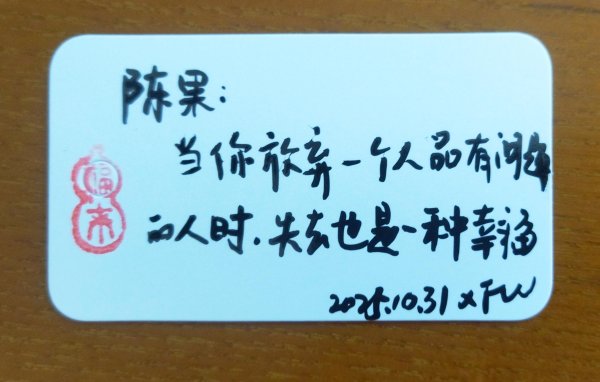 陈果:
当你放弃一个人品有问题
的人时.失去也是一种幸福
2025.10.31 XFW
福